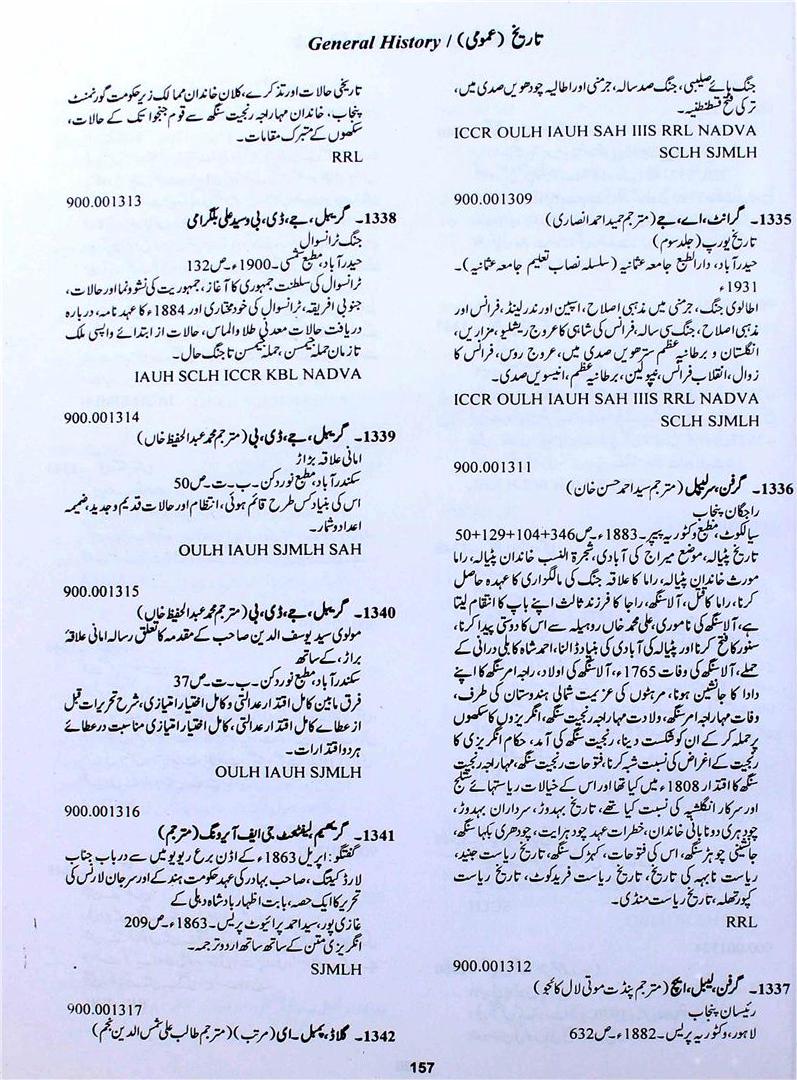 General History / تاریخ (عمومی)
جنگ ہائے صلیبی، جنگ صد سالہ، جرمنی اور اطالیہ چودھویں صدی میں،
ترکی فتح قسطنطنیہ۔
ICCR OULH IAUH SAH IIIS RRL NADVA
SCLH SJMLH
900.001309
1335۔ گرانٹ، اے، جے (مترجم حمید احمد انصاری)
تاریخ یورپ (جلد سوم)
حیدرآباد، دارالطبع جامعہ عثمانیہ (سلسلہ نصاب تعلیم جامعہ عثمانیہ)۔
1931ء
اطالوی جنگ، جرمنی میں مذہبی اصلاح، اسپین اور ندرلینڈ، فرانس اور
مذہبی اصلاح، جنگ سی سالہ، فرانس کی شاہی کا عروج ریشلیو، مزاریں،
انگلستان و برطانیہ عظمٰی سترھویں صدی میں، عروج روس، فرانس کا
زوال، انقلاب فرانس، نیپولین، برطانیہ عظمٰی، انیسویں صدی۔
ICCR OULH IAUH SAH IIIS RRL NADVA
SCLH SJMLH
900.001311
1336۔ گرفن، سر لیپل (مترجم سید احمد حسن خان)
راجگان پنجاب
سیالکوٹ، مطبع وکٹوریہ پیپر۔ 1883ء۔ ص 346+104+129+50
تاریخ پٹیالہ، موضع میراج کی آبادی، شجرۃ النسب خاندان پٹیالہ، راما
مورث خاندان پٹیالہ، راما کا علاقہ جنگ کی مالگزاری کا عہدہ حاصل
کرنا، راما کا قتل، آلا سنگھ، راجا کا فرزند ثالث اپنے باپ کا انتقام لیتا
ہے، آلا سنگھ کی ناموری، علی محمد خاں روہیلہ سے اس کا دوستی پیدا کرنا،
سنور کا فتح کرنا اور پٹیالہ کی آبادی کی بنیاد ڈالنا، احمد شاہ کابلی درانی کے
حملے، آلا سنگھ کی وفات 1765ء، آلا سنگھ کی اولاد، راجہ امر سنگھ کا اپنے
دادا کا جانشین ہونا، مرہٹوں کی عزیمت شمالی ہندوستان کی طرف،
وفات مہاراجہ امر سنگھ، ولادت مہاراجہ رنجیت سنگھ، انگریزوں کا سکھوں
پر حملہ کر کے ان کو شکست دینا، رنجیت سنگھ کی آمد، حکام انگریزی کا
رنجیت کے اغراض کی نسبت شبہ کرنا، فتوحات رنجیت سنگھ، مہاراجہ رنجیت
سنگھ کا اقتدار 1808ء میں کیا تھا اور اس کے خیالات ریاستہائے ستلج
اور سرکار انگلشیہ کی نسبت کیا تھے، تاریخ بہدوڑ، سرداران بہدوڑ،
چودہری دونا بانی خاندان، خطرات عہد چودہرایت، چودھری بکہا سنگھ،
جانشینی چوہڑ سنگھ، اس کی فتوحات، کہڑک سنگھ، تاریخ ریاست جنید،
ریاست نابہہ کی تاریخ، تاریخ ریاست فریدکوٹ، تاریخ ریاست
کپورتھلہ، تاریخ ریاست منڈی۔
RRL
900.001312
1337۔ گرفن، لیپل، ایچ (مترجم پنڈت موتی لال کاٹجو)
رئیسان پنجاب
لاہور، وکٹوریہ پریس۔ 1882ء۔ ص 632
تاریخی حالات اور تذکرے، کلان خاندان ممالک زیر حکومت گورنمنٹ
پنجاب، خاندان مہاراجہ رنجیت سنگھ سے قوم جنجوا تک کے حالات،
سکھوں کے متبرک مقامات۔
RRL
900.001313
1338۔ گریبل، جے، ڈی، بی و سید علی بلگرامی
جنگ ٹرانسوال
حیدرآباد، مطبع شمسی۔ 1900ء۔ ص 132
ٹرانسوال کی سلطنت جمہوری کا آغاز، جمہوریت کی نشو و نما اور حالات،
جنوبی افریقہ، ٹرانسوال کی خودمختاری اور 1884ء کا عہد نامہ، دربارہ
دریافت حالات معدنی طلا والماس، حالات از ابتدائے واپسی ملک
تا زمان حملہ جیمسن، حملہ جیمسن تا جنگ حال۔
IAUH SCLH ICCR KBL NADVA
900.001314
1339۔ گریبل، جے، ڈی، بی (مترجم محمد عبدالحفیظ خاں)
امانی علاقہ براڑ
سکندرآباد، مطبع نور دکن۔ ب۔ت۔ ص 50
اس کی بنیاد کس طرح قائم ہوئی، انتظام اور حالات قدیم و جدید، ضمیمہ
اعداد و شمار۔
OULH IAUH SJMLH SAH
900.001315
1340۔ گریبل، جے، ڈی، بی (مترجم محمد عبدالحفیظ خاں)
مولوی سید یوسف الدین صاحب کے مقدمہ کا تعلق رسالہ امانی علاقہ
براڑ، کے ساتھ
سکندرآباد، مطبع نور دکن۔ ب۔ت۔ ص 37
فرق مابین کامل اقتدار عدالتی و کامل اختیار امتیازی، شرح تحریرات قبل
از عطائے کامل اقتدار عدالتی، کامل اختیار امتیازی مناسبت در عطائے
ہر دو اقتدارات۔
OULH IAUH SJMLH
900.001316
1341۔ گریھیم، لیفٹنٹ جی ایف آیرونگ (مترجم)
گفتگو: اپریل 1863ء کے اڈن برغ ریویو میں سے در باب جناب
لارڈ کیننگ، صاحب بہادر کی عہد حکومت ہند کے اور سر جان لارنس کی
تحریر کا ایک حصہ، بابت اظہار بادشاہ دہلی کے
غازی پور، سید احمد پرائیوٹ پریس۔ 1863ء۔ ص 209
انگریزی متن کے ساتھ ساتھ اردو ترجمہ۔
SJMLH
900.001317
1342۔ گلاڈ، پمبل۔ ای (مرتب) (مترجم طالب علی شمس الدین نجم)
157